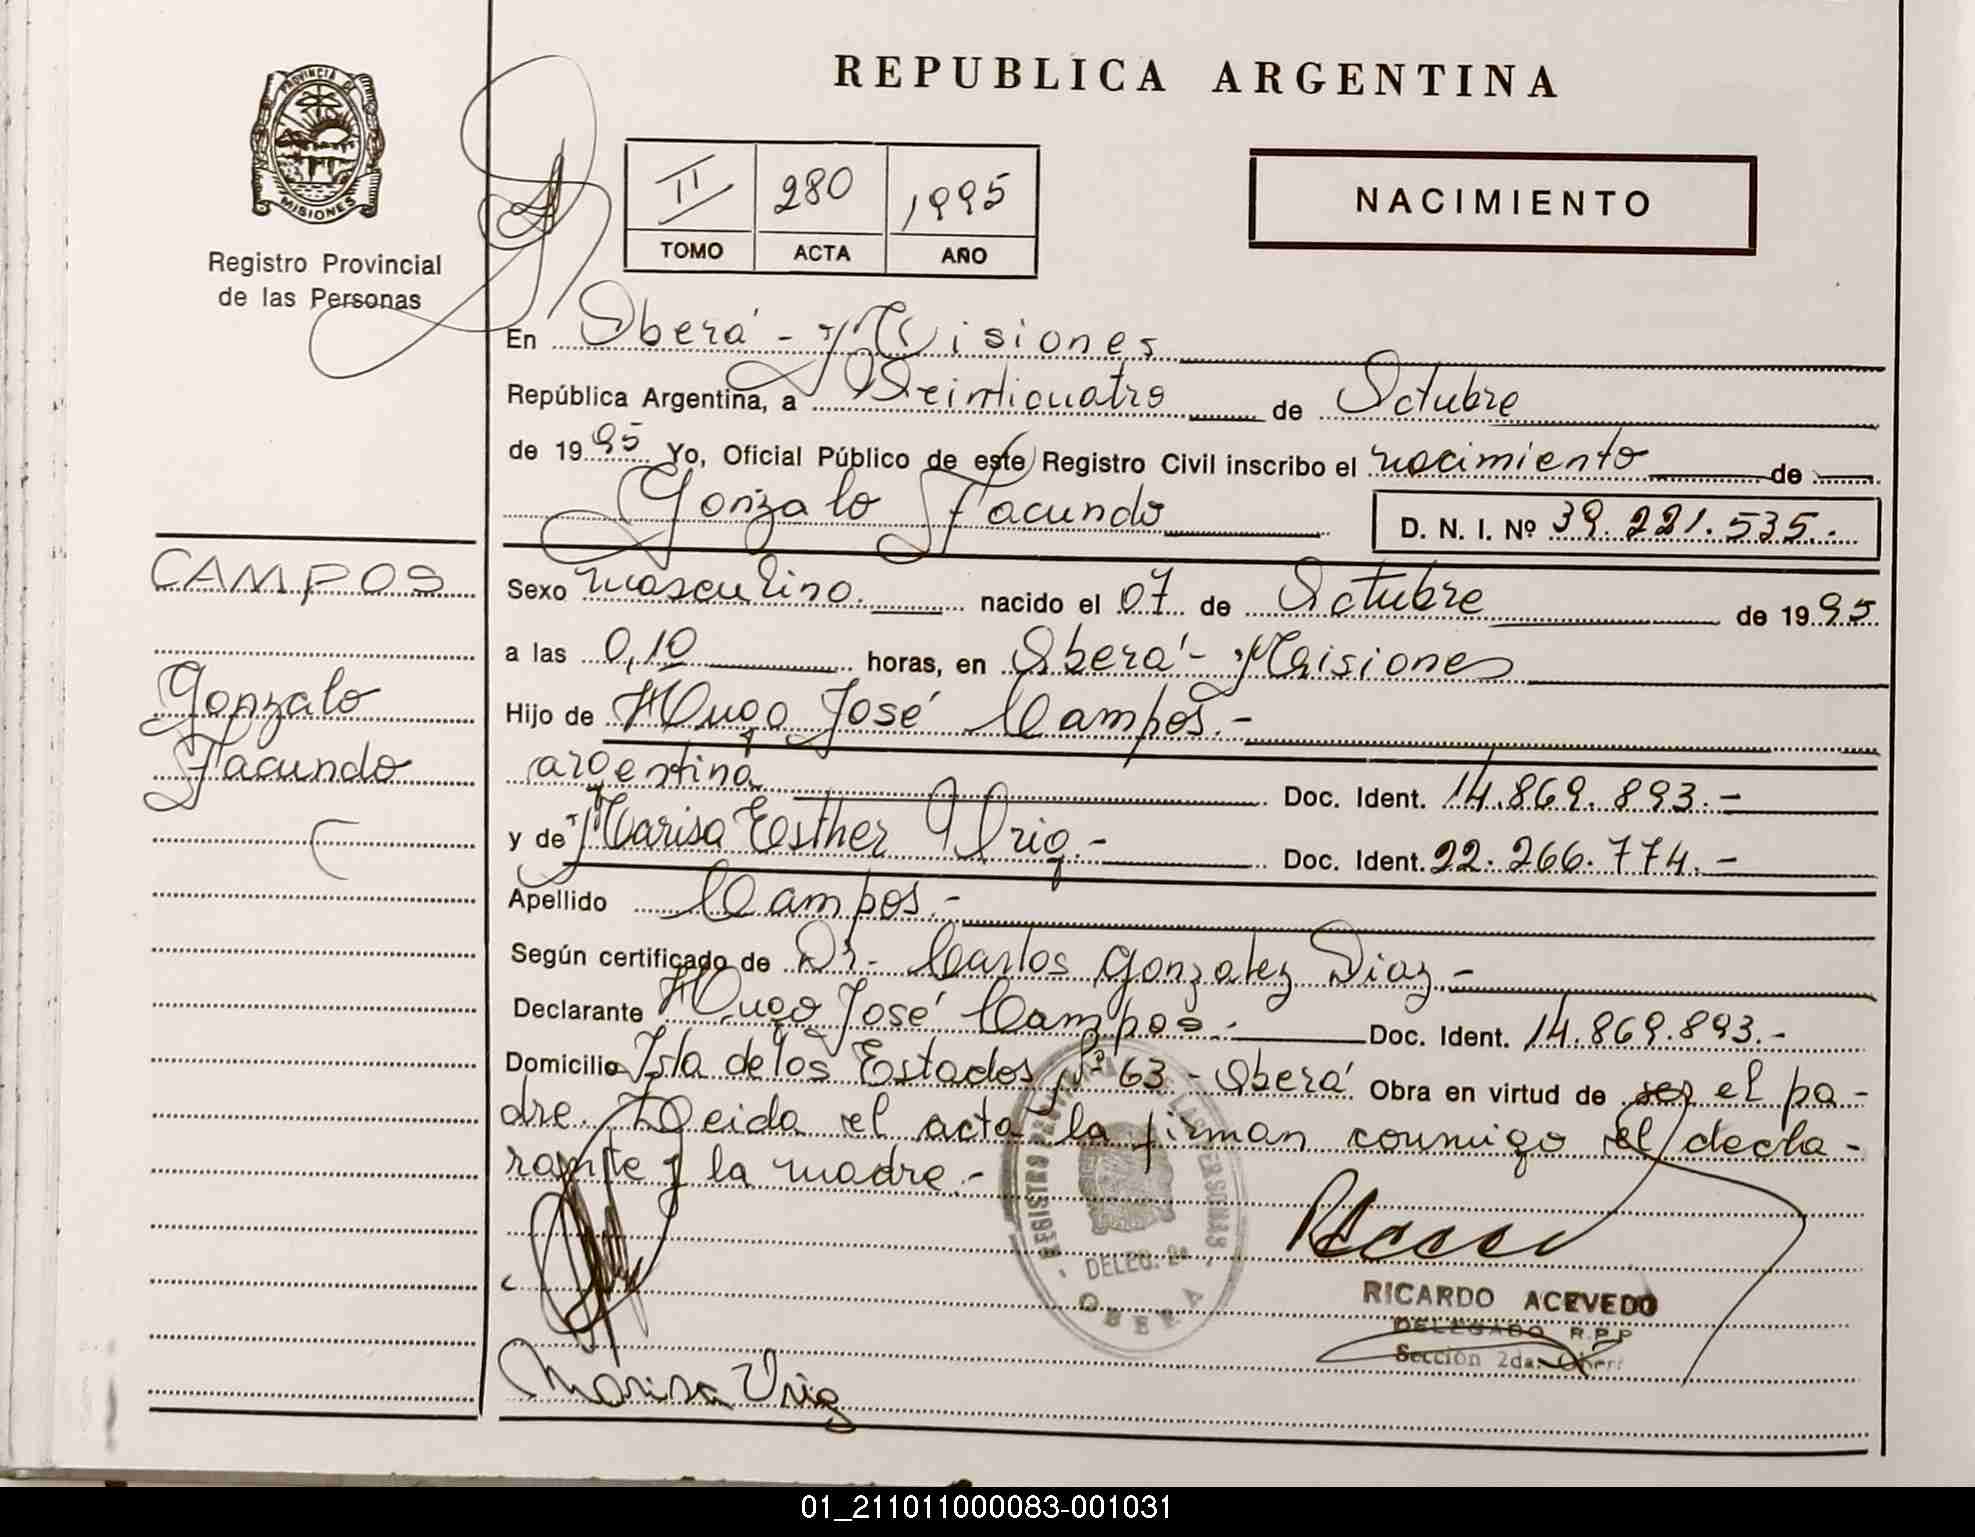 REPUBLICA ARGENTINA
PROVINCIA DE
MISIONES
Registro Provincial
de las Personas
II 280 1995
TOMO ACTA AÑO
NACIMIENTO
En Oberá - Misiones
República Argentina, a Veinticuatro de Octubre
de 1995 Yo, Oficial Público de este Registro Civil inscribo el nacimiento de
Gonzalo Facundo D. N. I. Nº 39.221.535.-
CAMPOS
Gonzalo
Facundo
Sexo masculino. nacido el 07 de Octubre de 1995
a las 0,10 horas, en Oberá - Misiones
Hijo de Hugo José Campos.-
argentina Doc. Ident. 14.869.893.-
y de Marisa Esther Urig.- Doc. Ident. 22.266.774.-
Apellido Campos.-
Según certificado de Dr. Carlos Gonzalez Diaz -
Declarante Hugo José Campos.- Doc. Ident. 14.869.893.-
Domicilio Isla de los Estados Nº 63 - Oberá Obra en virtud de ser el pa-
dre. Leida el acta la firman conmigo el decla-
rante y la madre.-
REGISTRO PROVINCIAL DE LAS PERSONAS
DELEG. 2a
OBERA
RICARDO ACEVEDO
DELEGADO R.P.P
Sección 2da. Oberá
Marisa Urig
01_211011000083-001031